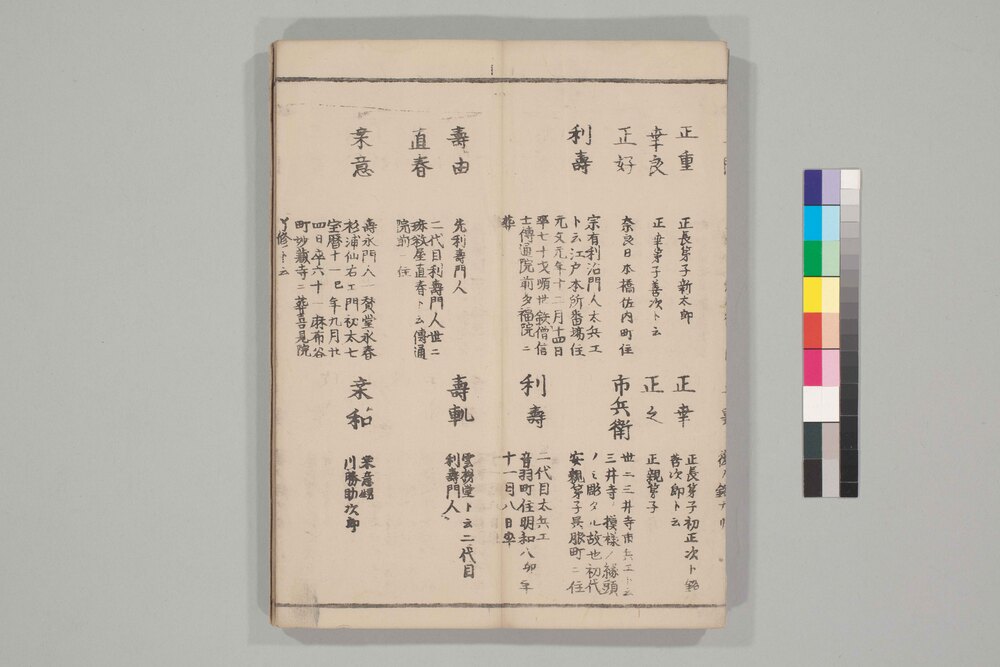 正重
正長弟子新太郎
幸良
正幸弟子善次ト云
正好
奈良日本橋佐内町住
利壽
宗有利治門人太兵エ
ト云江戸本所番場住
元文元年十二月十四日
卒七十才順世釼僧信
士傳通院前多福院ニ
葬
壽由
先利壽門人
直春
二代目利壽門人世ニ
珠数屋直春ト云傳通
院前ニ住
壽永門人一賛堂永春
杉浦仙右エ門
宝暦十一巳年九月廿
四日卒六十一麻布谷
町妙蔵寺ニ葬
修ト云
正幸
正長弟子初正次ト銘
善次郎ト云
正之
正親弟子
市兵衛
世ニ三井寺市兵エト云
三井寺ノ模様ノ縁頭
ノミ彫タル故也初代
安親弟子呉服町ニ住
利壽
二代目太兵エ
音羽町住明和八卯年
十一月八日卒
壽軏
ト云二代目
利壽門人
川勝助次郎